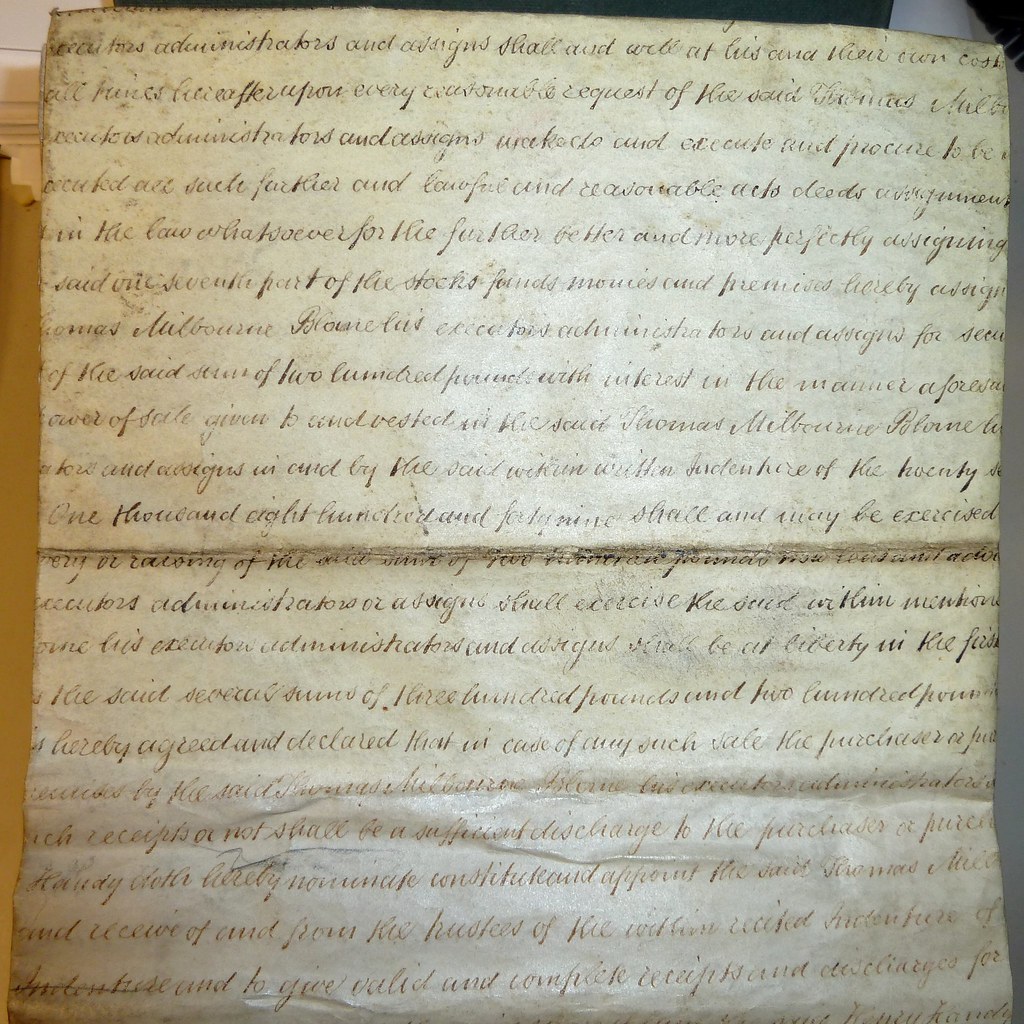 executors administrators and assigns shall and will at his and their own costs
all times hereafter upon every reasonable request of the said Thomas Milbo
executors administrators and assigns make do and execute and procure to be
ecuted all such further and lawful and reasonable acts deeds assignment
in the law whatsoever for the further better and more perfectly assigning
said one seventh part of the stocks funds monies and premises hereby assign
homas Milbourne Blane his executors administrators and assigns for secu
of the said sum of two hundred pounds with interest in the manner aforesa
ower of sale given to and vested in the said Thomas Milbourne Blane hi
ators and assigns in and by the said within written Indenture of the twenty se
One thousand eight hundred and forty nine shall and may be exercised
very or raising of the said sum of two hundred pounds now lent and adva
executors administrators or assigns shall exercise the said within mentione
ome his executors administrators and assigns shall be at liberty in the first
the said several sums of three hundred pounds and two hundred poun
is hereby agreed and declared that in case of any such sale the purchaser or pur
remises by the said Thomas Milbourne Blane his executors administrators
uch receipts or not shall be a sufficient discharge to the purchaser or purch
Handy doth hereby nominate constitute and appoint the said Thomas Mil
and receive of and from the trustees of the within recited Indenture of
Indenture and to give valid and complete receipts and discharges for
Henry Handy